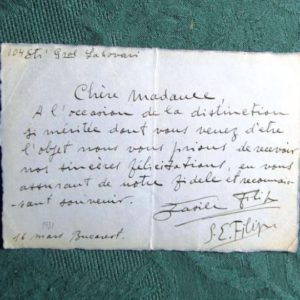 104 Str. Gral Lahovari
Chère Madame,
A l'occasion de la distinction
si méritée dont vous venez d'etre
l'objet nous vous prions de recevoir
nos sincères félicitations, en vous
assurant de notre fidele et reconnais-
sant souvenir.
Vasile Filip
S E. Filip
16 mars Bucarest.